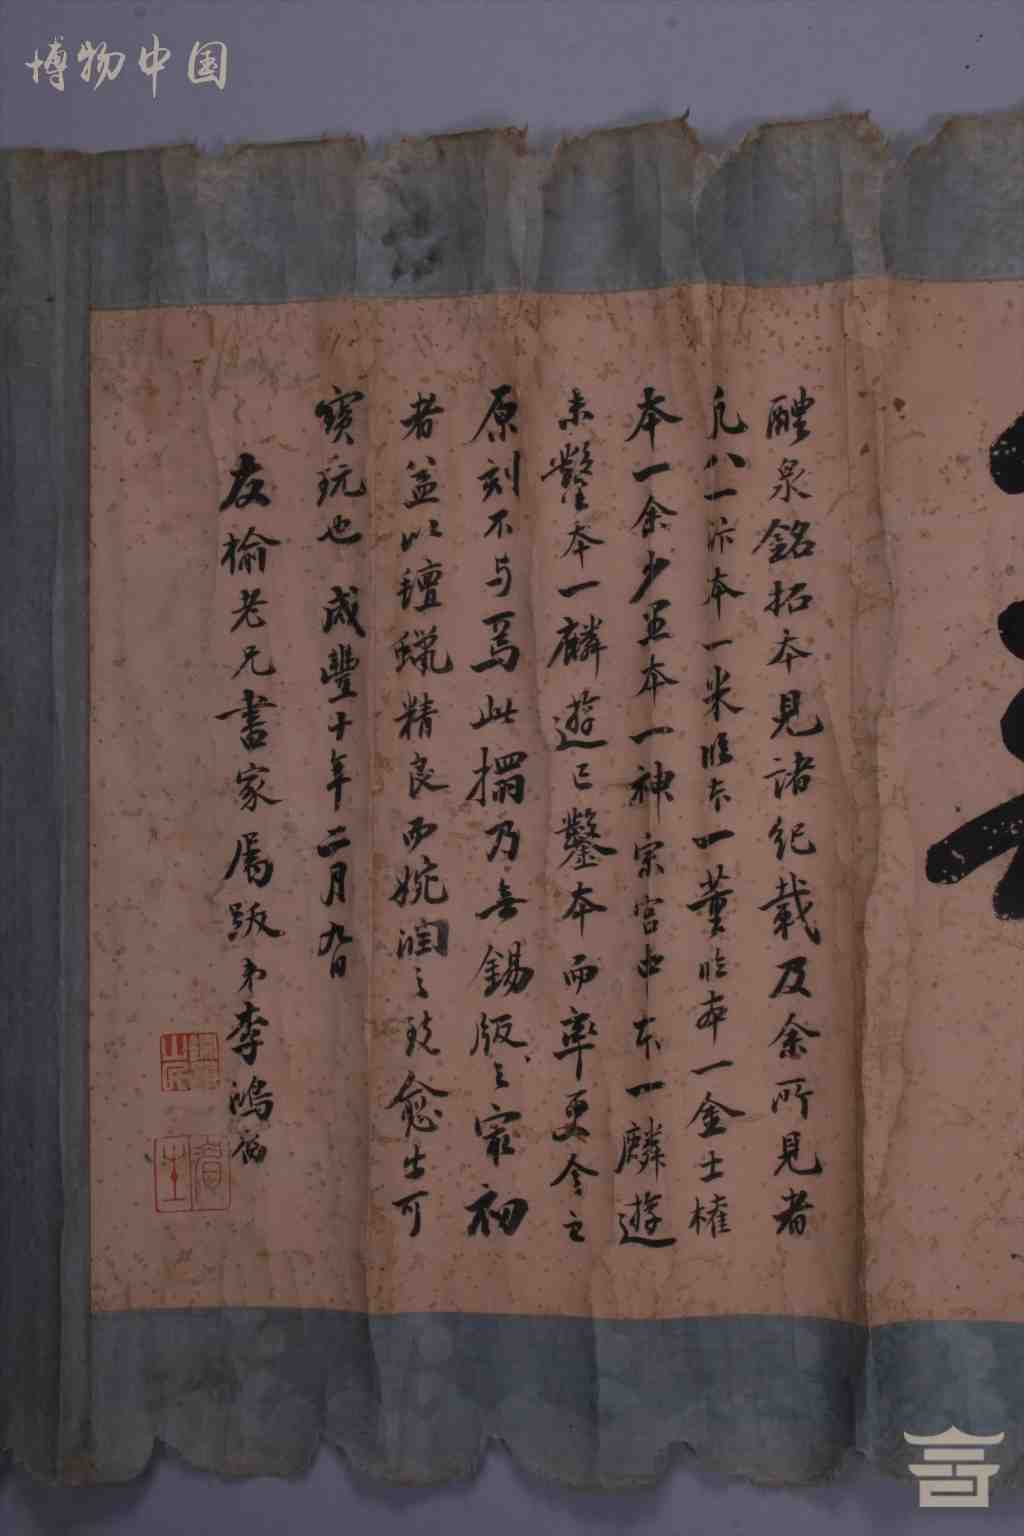 博物中国
醴泉銘拓本見諸紀載及余所見者
凡八一汴本一米臨本一董臨本一金士榷
本一余少並本一神宗宫中本一麟遊
未鑿本一麟遊已鑿本而率更令之
原刻不与焉此搨乃無錫版之最初
者益以氊蠟精良而婉潤之致愈出可
寳玩也 咸豐十年二月九日
友榆老兄書家属跋弟李鴻